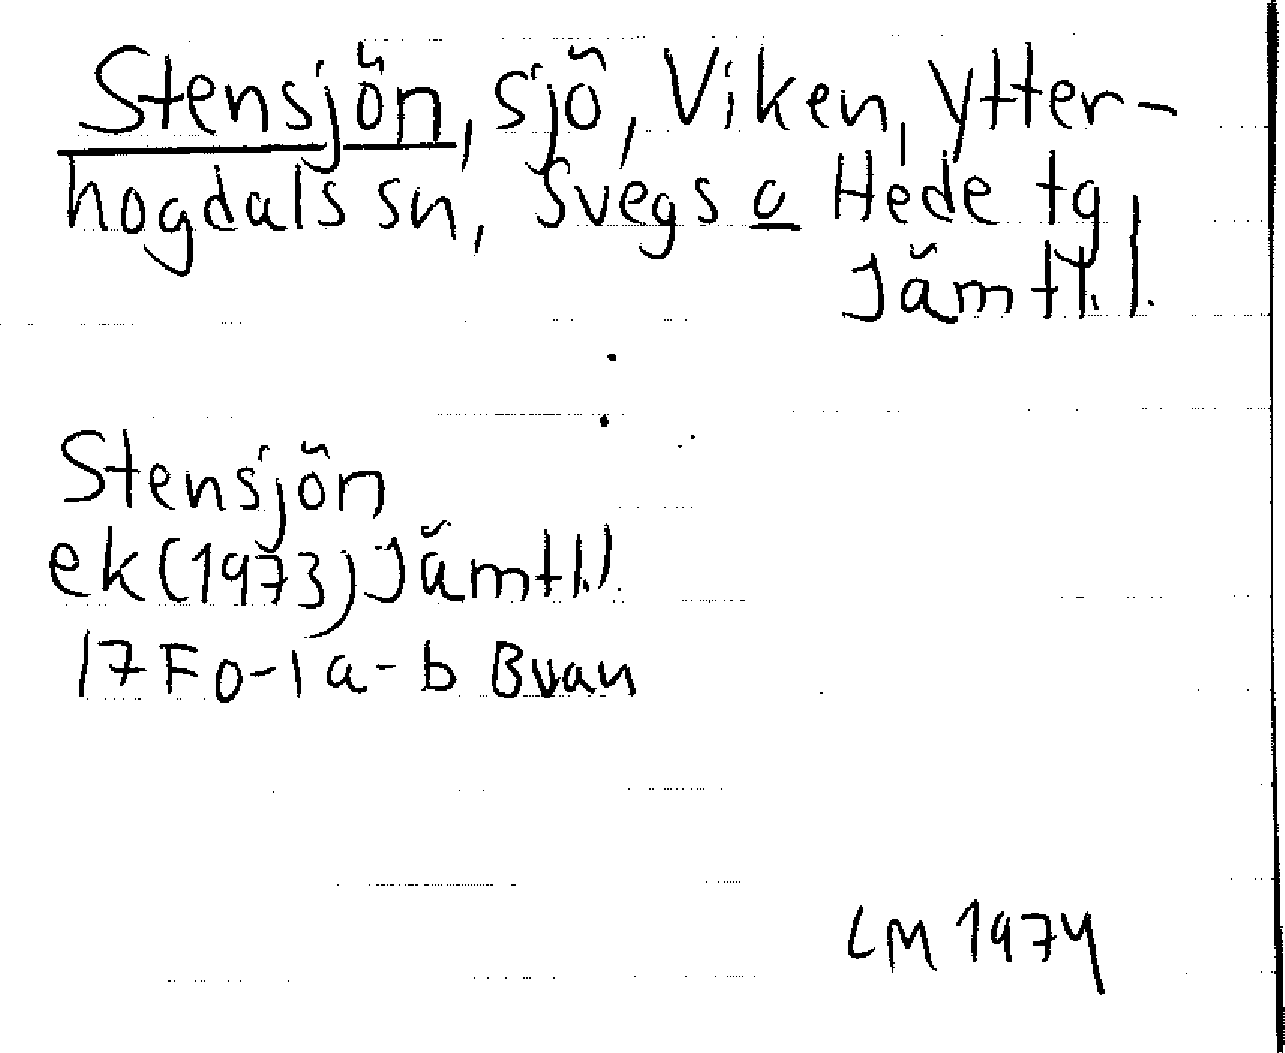 Stensjön, sjö, Viken, Ytter-
hogdals sn, Svegs o Hede tg
Jämtl. l.
Stensjön
ek (1973) Jämtl.l.
17 F 0-1 a-b Bvan
LM 1974